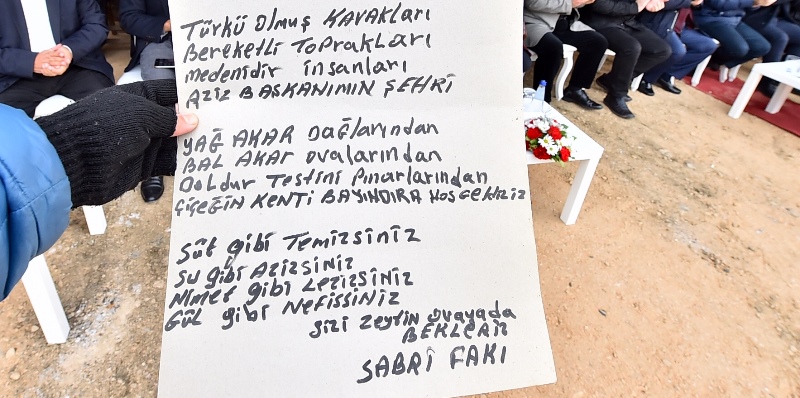 TÜRKÜ OLMUŞ KAVAKLARI
BEREKETLİ TOPRAKLARI
MEDENİDİR İNSANLARI
AZİZ BAŞKANIMIN ŞEHRİ
YAĞ AKAR DAĞLARINDAN
BAL AKAR OVALARINDAN
DOLDUR TESTİNİ PINARLARINDAN
ÇİÇEĞİN KENTİ BAYINDIRA HOŞGELDİNİZ
SÜT GİBİ TEMİZSİNİZ
SU GİBİ AZİZSİNİZ
NİMET GİBİ LEZİZSİNİZ
GÜL GİBİ NEFİSSİNİZ
SİZİ ZEYTİN OVAYADA
BEKLERİZ
SABRİ FAKI